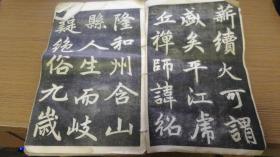 薪續火可謂
盛矣平江虎
丘禪師諱紹
隆和州含山
縣人生而岐
嶷絕俗九歲